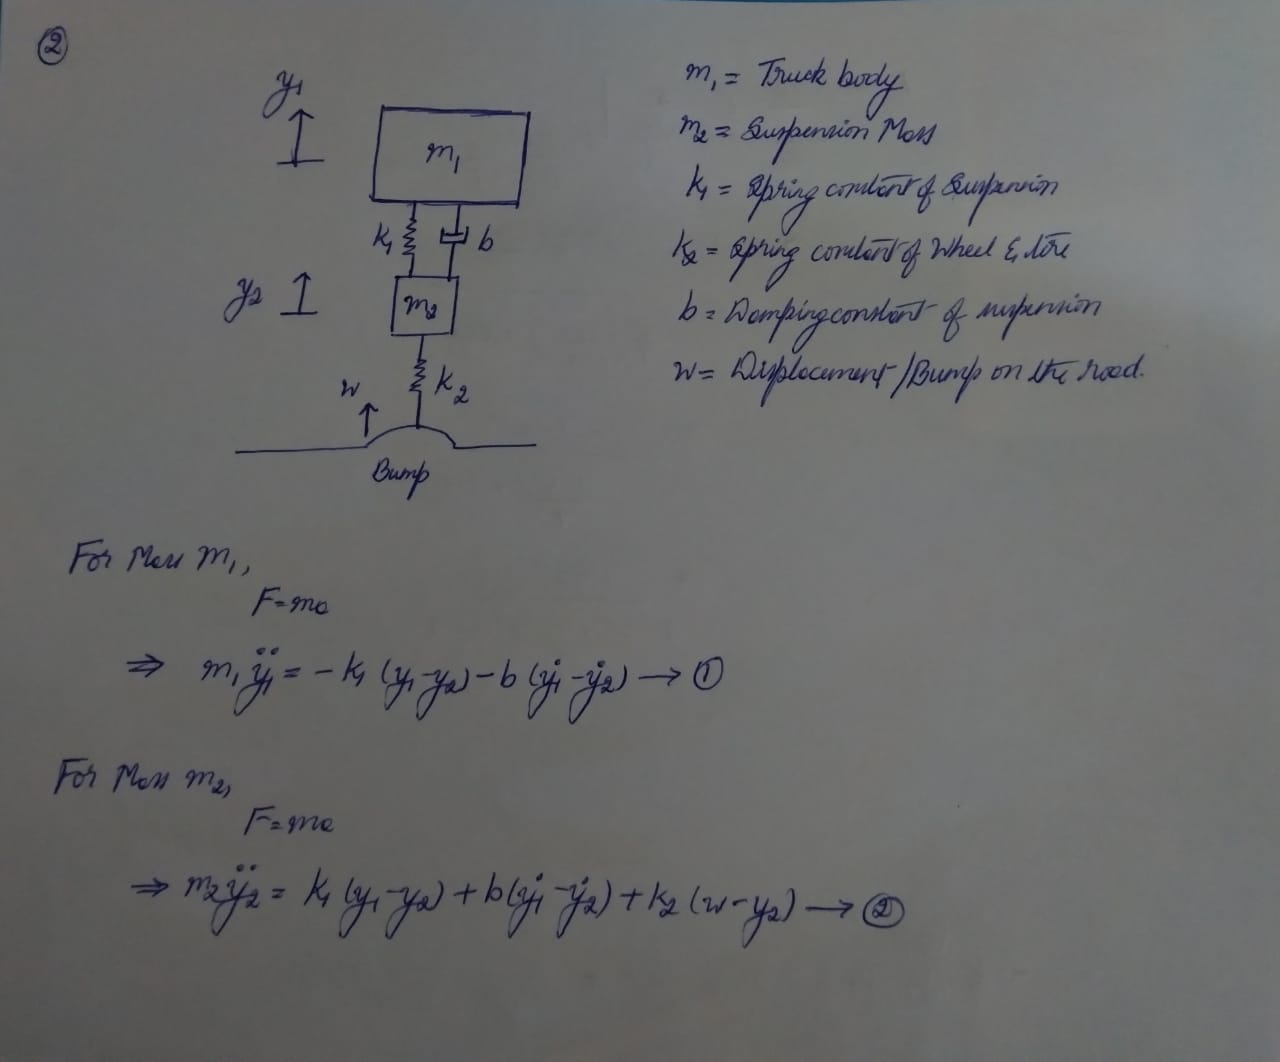 ②
y₁
m₁
k₁
b
y₂
m₂
w
k₂
Bump
m₁ = Truck body
m₂ = Suspension Mass
k₁ = Spring constant of Suspension
k₂ = Spring constant of Wheel & tire
b = Damping constant of suspension
w = Displacement / Bump on the road.
For Mass m₁,
F = ma
⇒ m₁ÿ₁ = -k₁ (y₁-y₂) - b (ẏ₁-ẏ₂) → ①
For Mass m₂,
F = ma
⇒ m₂ÿ₂ = k₁ (y₁-y₂) + b(ẏ₁-ẏ₂) + k₂ (w-y₂) → ②